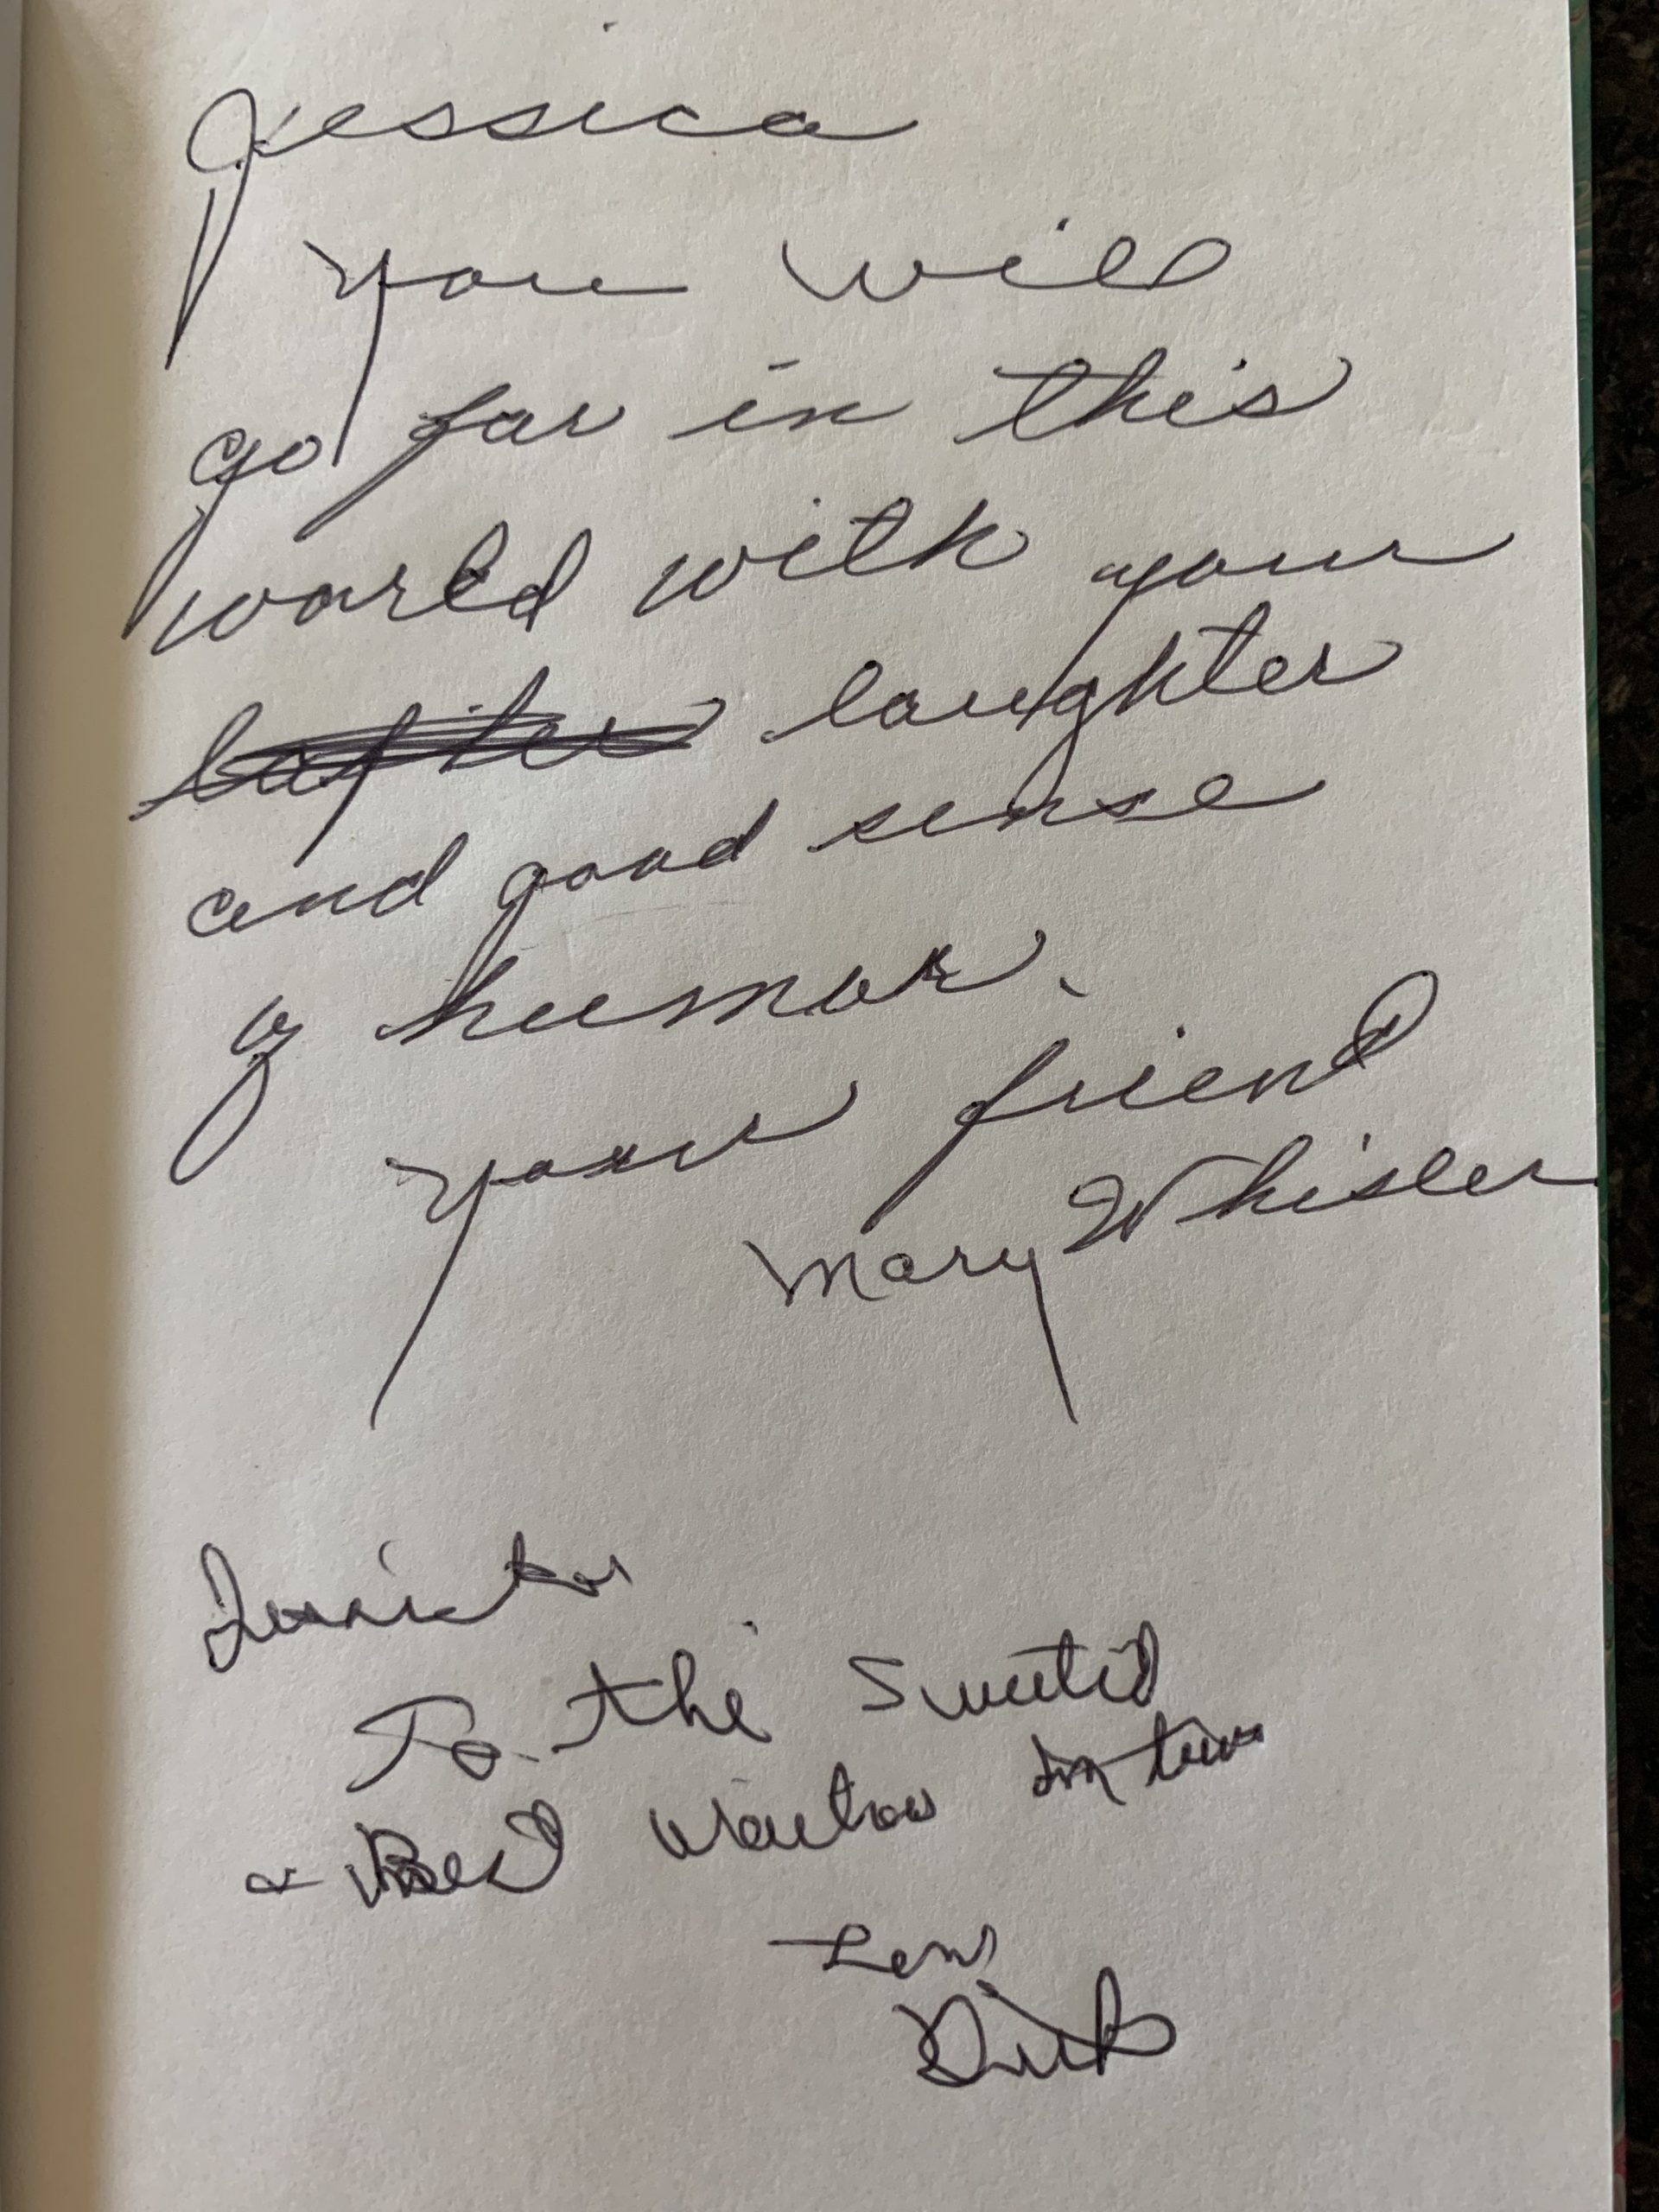 Jessica
you will
go far in this
world with your
laughter
and good sense
of humor.
your friend
Mary Whisler
To the Sweetest
& Best in town
Love
Dick